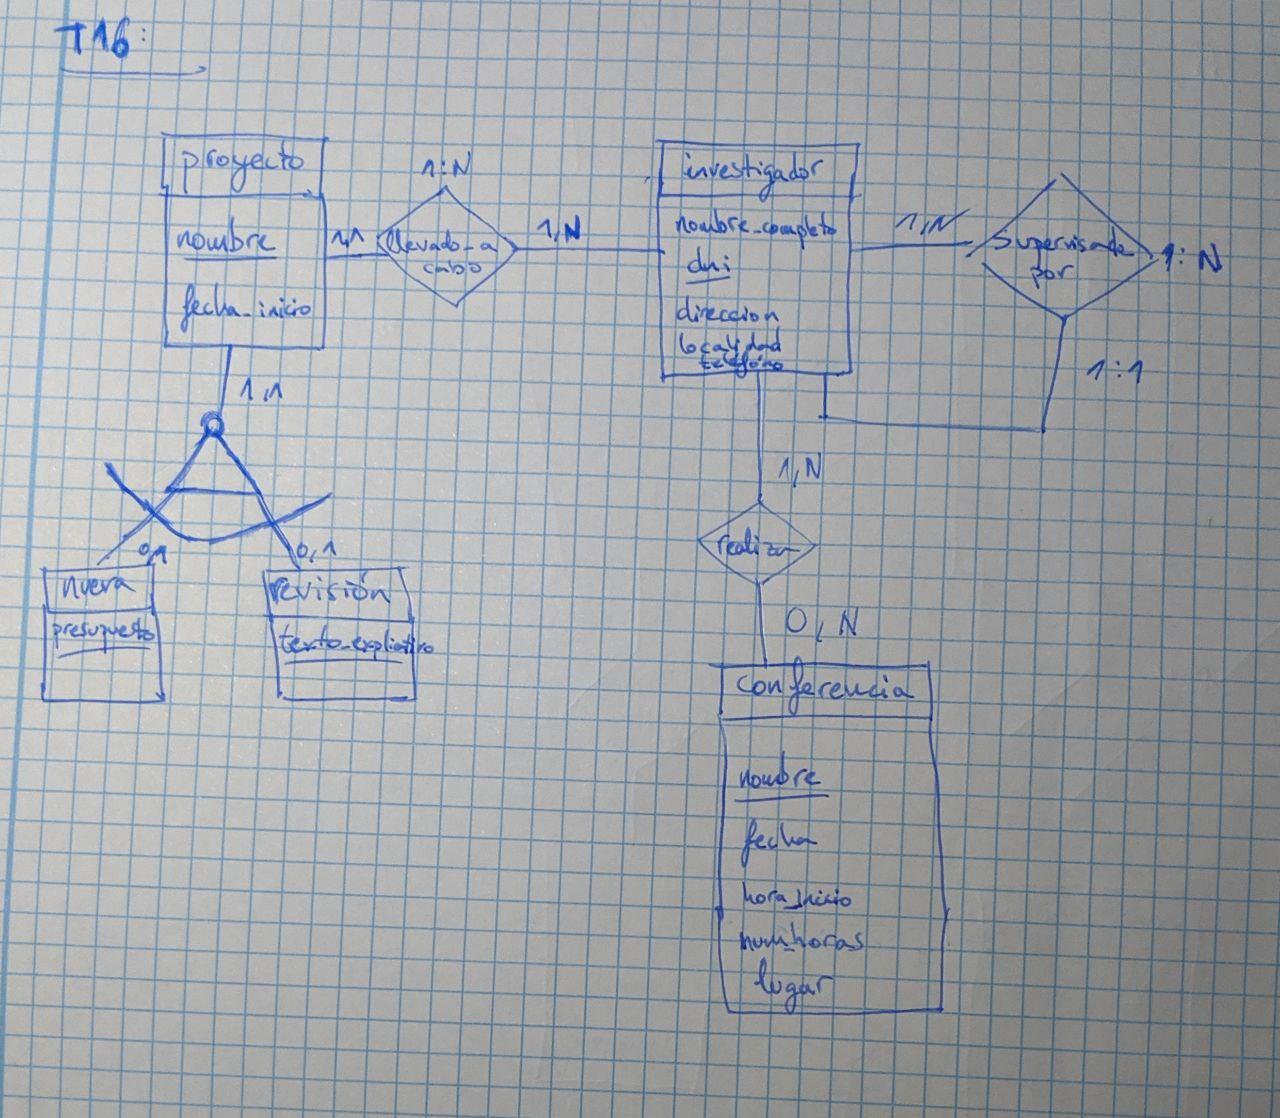 T16:
proyecto
nombre
fecha_inicio
1,1
1:N
llevado_a
cabo
1,N
investigador
nombre_completo
dni
direccion
localidad
teléfono
1,N
Supervisado
por
1:N
1:1
1,1
0,1
0,1
nueva
presupuesto
revisión
texto_explicativo
1,N
realizar
0,N
Conferencia
nombre
fecha
hora_inicio
num_horas
lugar